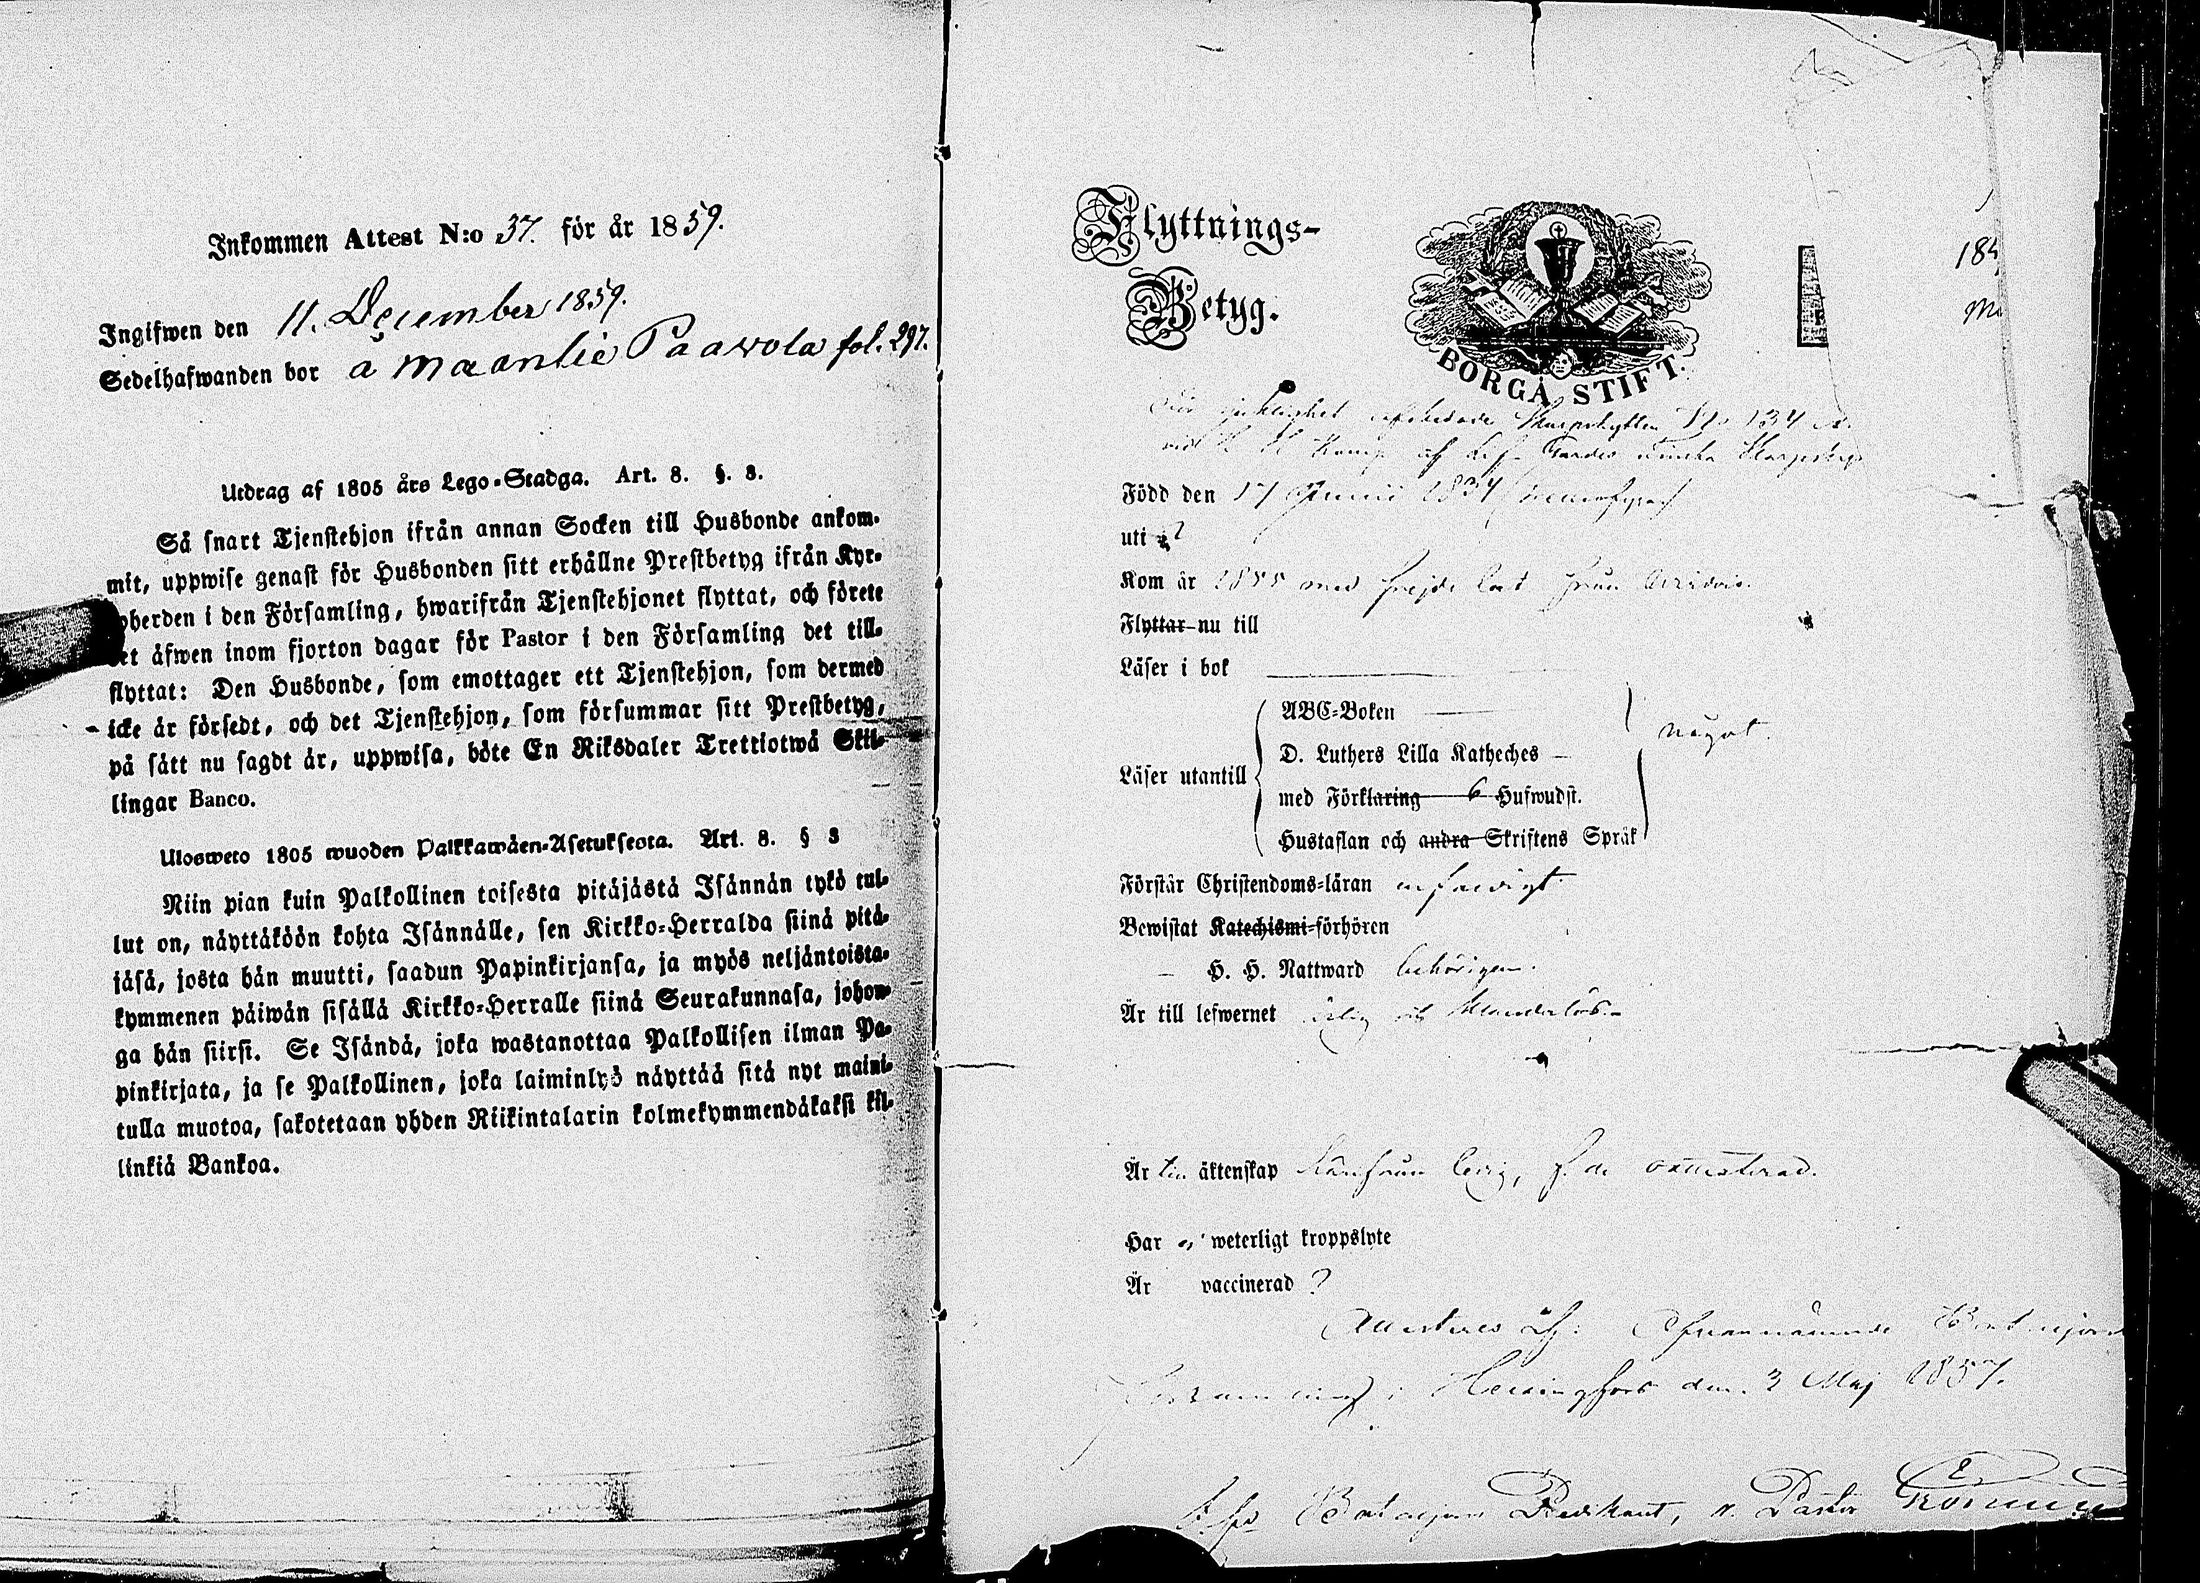 Inkommen Attest N:o 37. för år 1859.
Ingifwen den 11. December 1859.
Sedelhafwanden bor a maanlie Paavola fol. 297.
Utdrag af 1805 års Lego-Stadga. Art. 8. §. 3.
Så snart Tjenstehjon ifrån annan Socken till Husbonde ankom-
mit, uppwise genast för Husbonden sitt erhållne Prestbetyg ifrån Kyr-
oherden i den Församling, hwarifrån Tjenstehjonet flyttat, och förete
et äfwen inom fjorton dagar för Pastor i den Församling det till-
flyttat: Den Husbonde, som emottager ett Tjenstehjon, som dermed
icke är försedt, och det Tjenstehjon, som försummar sitt Prestbetyg,
på sätt nu sagdt är, uppwisa, böte En Riksdaler Trettiotwå Skil-
lingar Banco.
Ulosweto 1805 wuoden Palkkawäen-Asetuksesta. Art. 8. § 3
Niin pian kuin Palkollinen toisesta pitäjästä Isännän tykö tul-
lut on, näyttäköön kohta Isännälle, sen Kirkko-Herralda siinä pitä-
jäsä, josta hän muutti, saadun Papinkirjansa, ja myös neljäntoista-
kymmenen päiwän sisällä Kirkko-Herralle siinä Seurakunnasa, johon-
ga hän siirsi. Se Isändä, joka wastanottaa Palkollisen ilman Pa-
pinkirjata, ja se Palkollinen, joka laiminlyö näyttää sitä nyt maini-
tulla muotoa, sakotetaan yhden Riikintalarin kolmekymmendäkaksi kil-
linkiä Bankoa.
Flyttnings-
Betyg.
BORGÅ STIFT.
184
För sjuklighet afskedade Skarpskytten No 134
vid Komp af Lif-Gardes Finska Skarpskytt
Född den 17 Junii 1834
uti ?
Kom år 1855 med frejdebet från
Flyttar nu till
Läser i bok
Läser utantill
ABC-Boken
D. Luthers Lilla Katheches
något.
med Förklaring 6 Hufwudst.
Hustaflan och andra Skriftens Språk
Förstår Christendoms-läran enfaldigt.
Bewistat Katechismi-förhören
H. H. Nattward behörigen.
Är till lefwernet ärlig och klanderlös.
Är till äktenskap härifrån ledig,
Har ej weterligt kroppslyte
Är vaccinerad ?
Attesteras af: Ofvannämnde Bataljons
Församling i Helsingfors den 3 Maj 1857.
Bataljons Predikant, v. Pastor